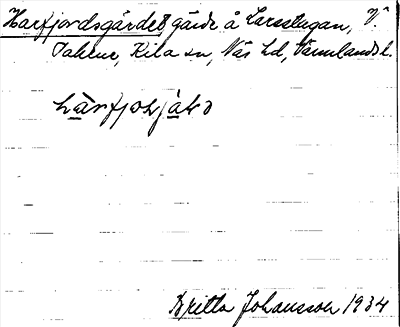 Harfjordsgärdet, gärde å Larsstugan, V.
Takene, Kila sn, Näs hd, Värmlands l.
Britta Johansson 1934